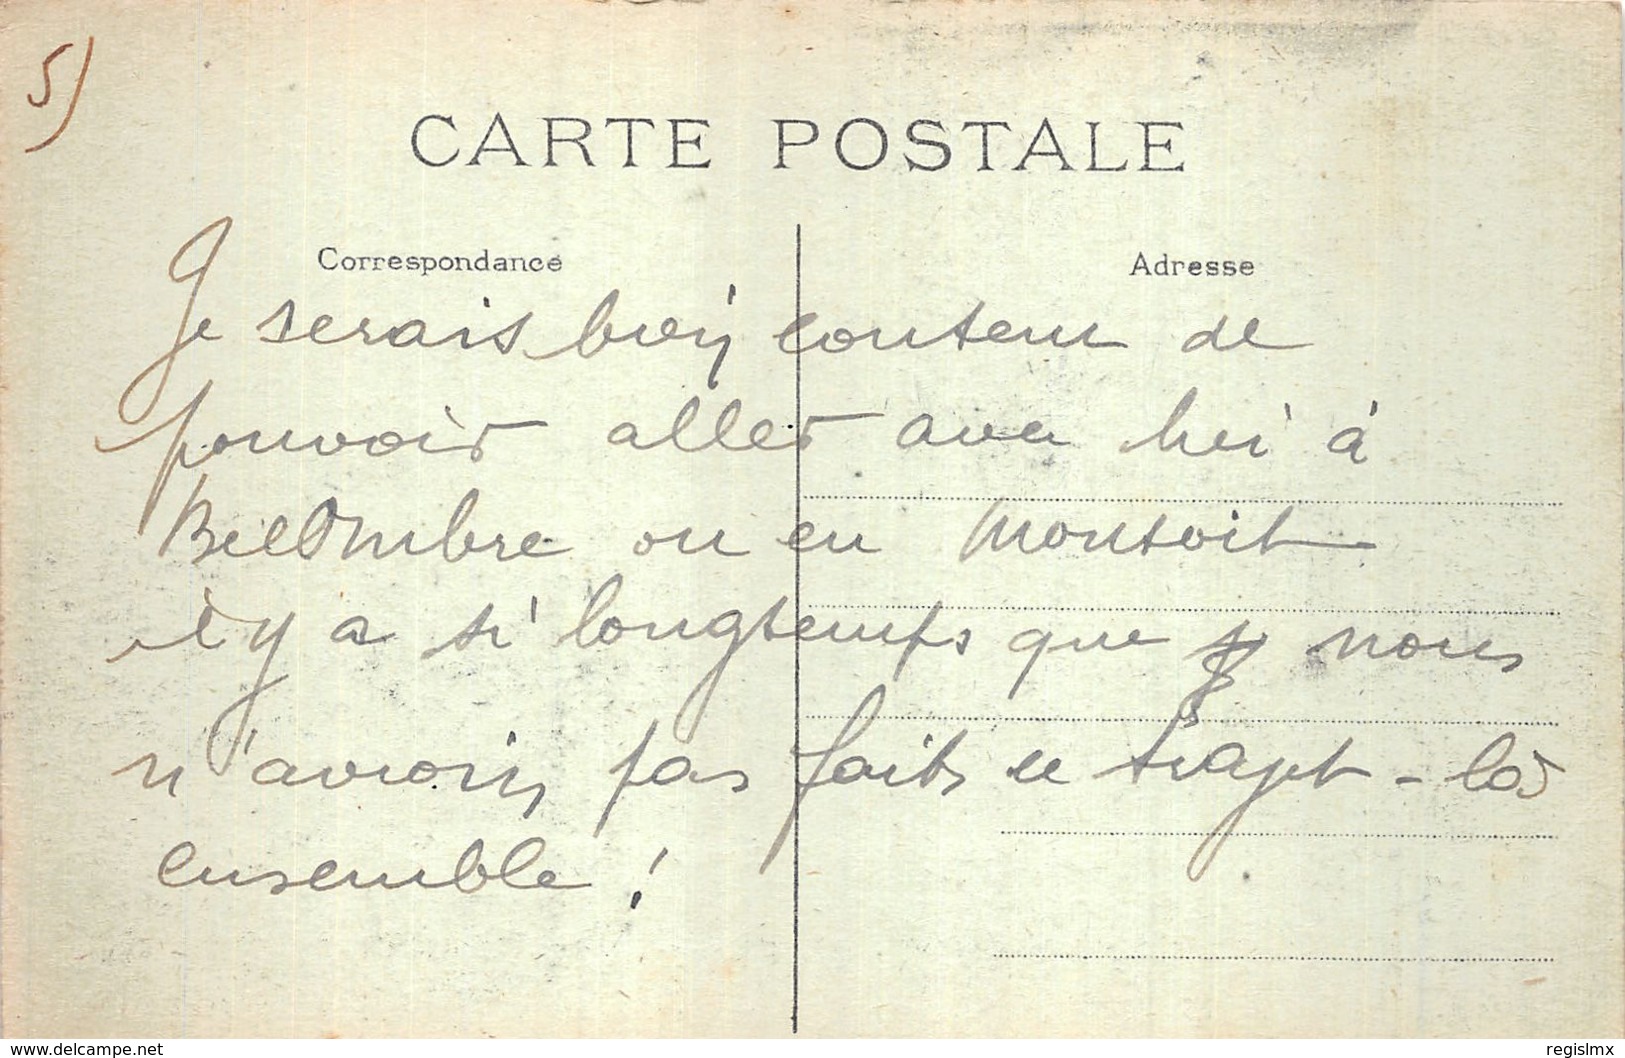 5)
CARTE POSTALE
Correspondance
Adresse
Je serais bien content de
pouvoir aller avec lui à
BelOmbre ou en Montoit
il y a si longtemps que nous
n'avions pas fait ce trajet-là
ensemble !
www.delcampe.net
regislmx